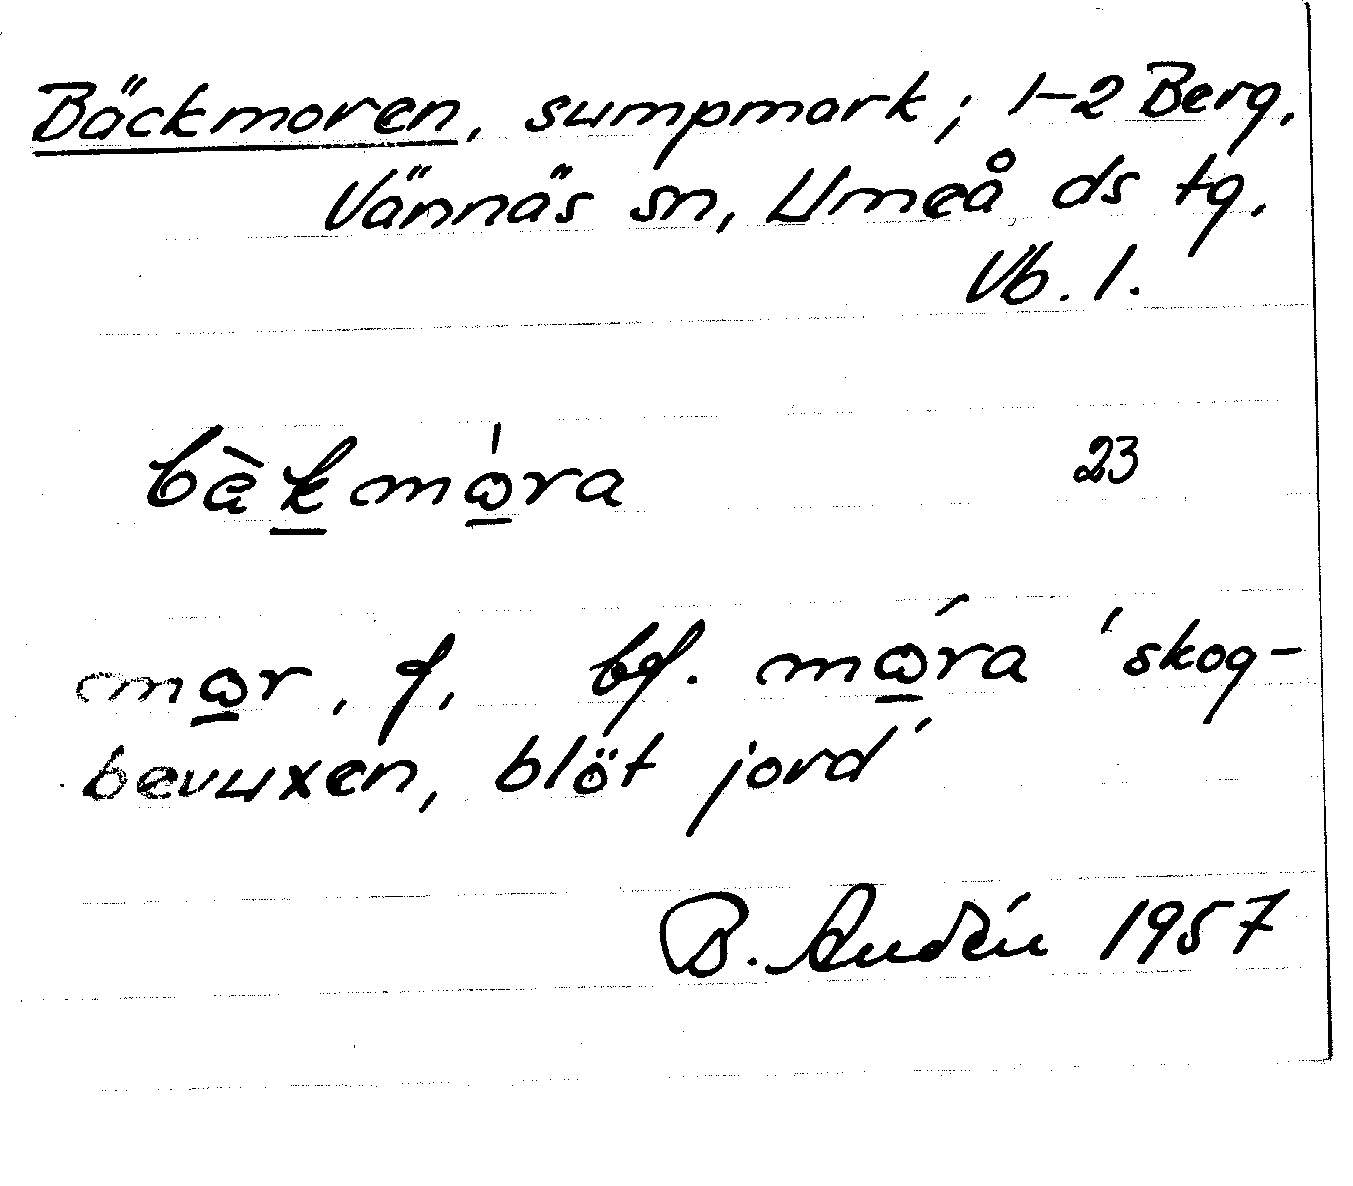 Bäckmoren, sumpmark; 1-2 Berg,
Vännäs sn, Umeå ds tg,
Vb. l.
bàk̲mώ̲ra 23
mω̲r, f, bf. mώ̲ra 'skog-
bevuxen, blöt jord'
B. Audén 1957